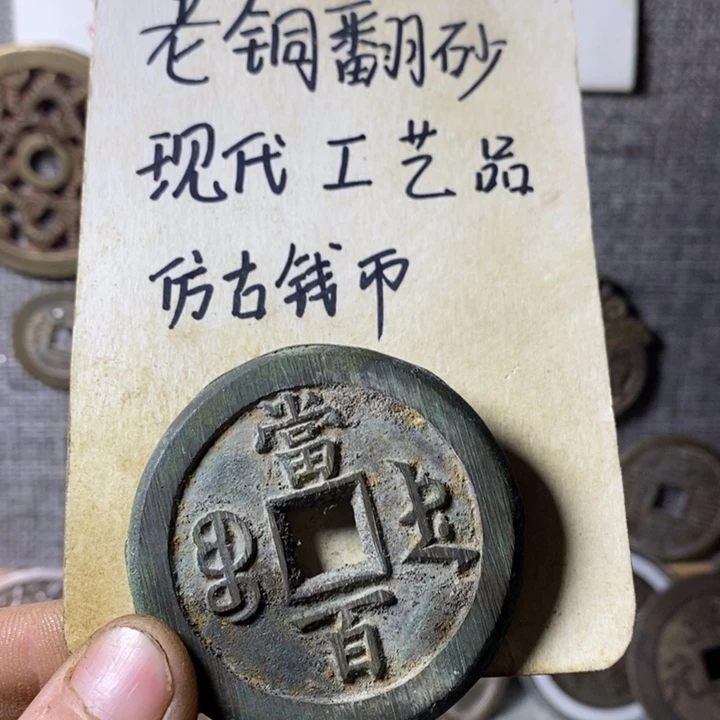 老铜翻砂
现代工艺品
仿古钱币
當
百
元